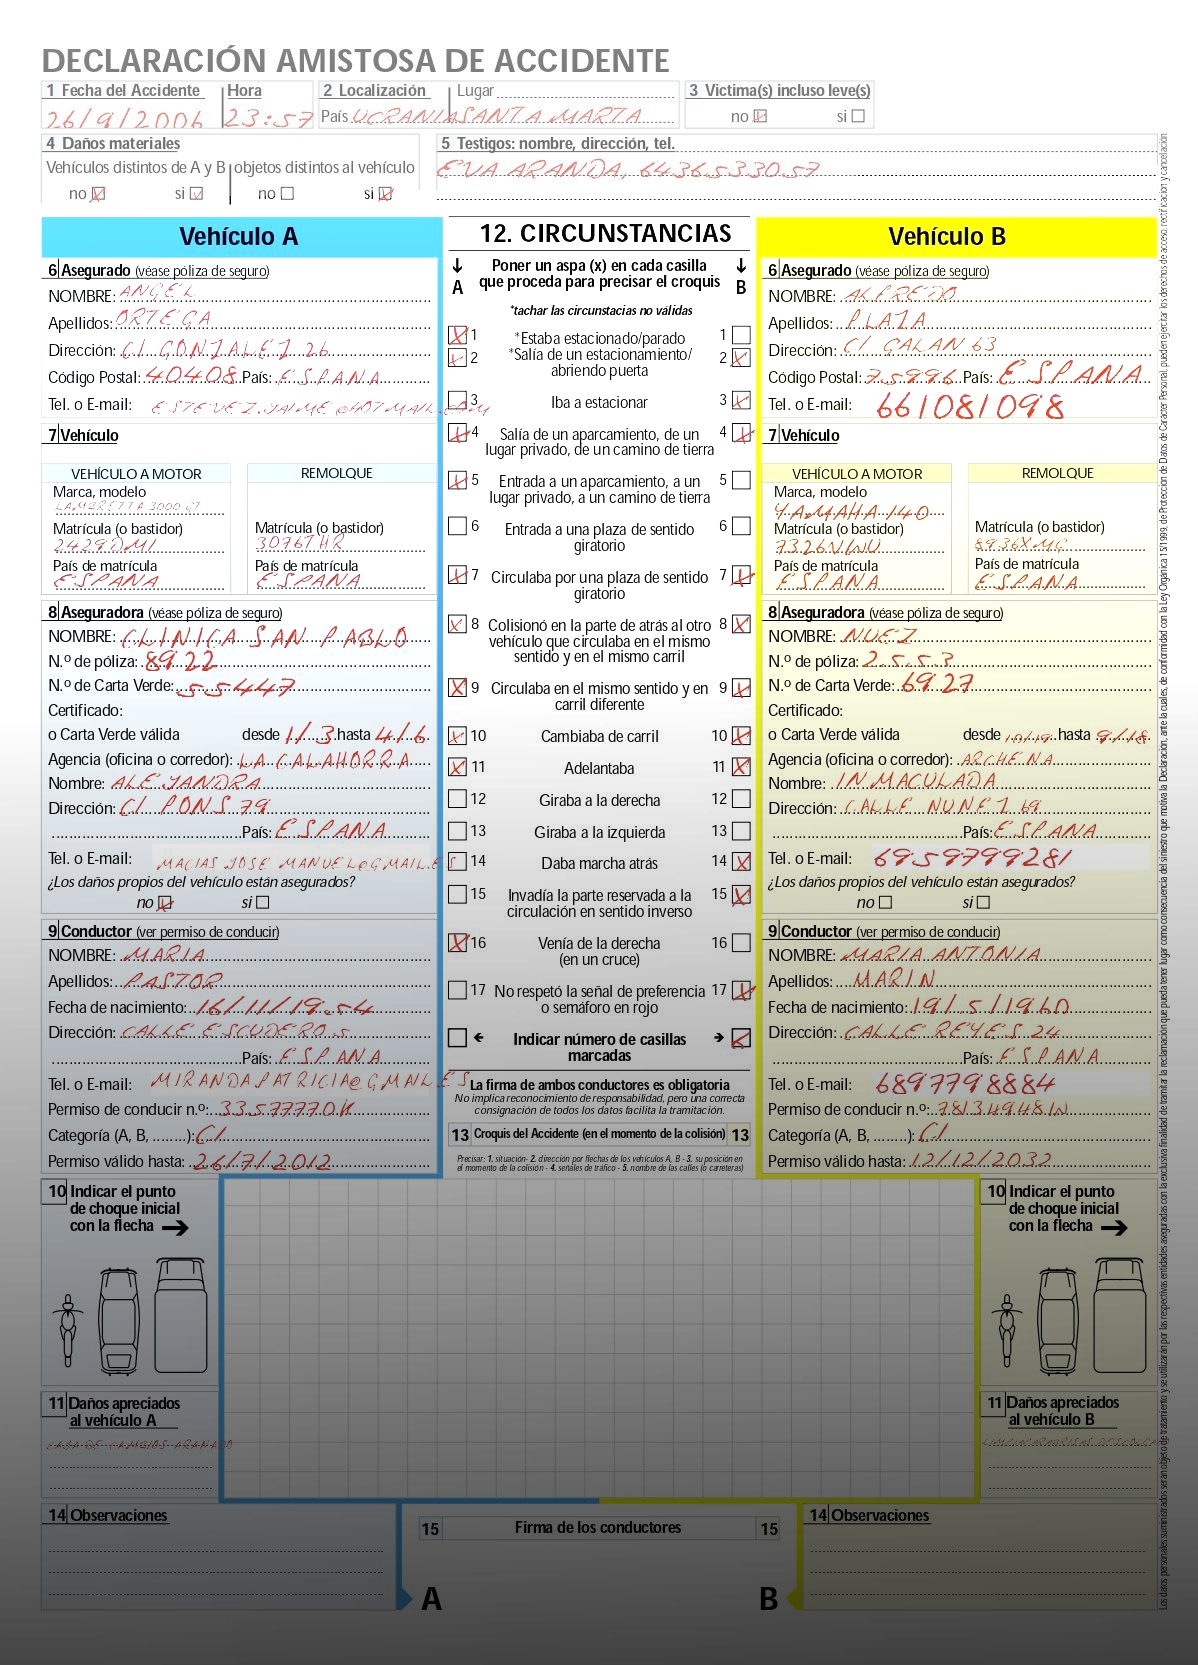 DECLARACIÓN AMISTOSA DE ACCIDENTE
1 Fecha del Accidente Hora 2 Localización Lugar 3 Victima(s) incluso leve(s)
26/9/2006 23:57 País UCRANIA SANTA MARTA no si
4 Daños materiales 5 Testigos: nombre, dirección, tel.
Vehículos distintos de A y B objetos distintos al vehículo EVA ARANDA, 6436533057
no si no si
Vehículo A
6 Asegurado (véase póliza de seguro)
NOMBRE: ANGEL
Apellidos: ORTEGA
Dirección: C/ GONZALEZ 26
Código Postal: 40408 País: ESPANA
Tel. o E-mail: ESTEVEZ.JAIME@HOTMAIL.COM
7 Vehículo
VEHÍCULO A MOTOR REMOLQUE
Marca, modelo
LAMBRETTA 3000 GT
Matrícula (o bastidor) Matrícula (o bastidor)
2429DMI 3076THR
País de matrícula País de matrícula
ESPANA ESPANA
8 Aseguradora (véase póliza de seguro)
NOMBRE: CLINICA SAN PABLO
N.º de póliza: 8922
N.º de Carta Verde: 55447
Certificado:
o Carta Verde válida desde 1/3 hasta 4/6
Agencia (oficina o corredor): LA CALAHORRA
Nombre: ALEJANDRA
Dirección: C/ PONS 79
País: ESPANA
Tel. o E-mail: MACIAS JOSE MANUEL@GMAIL.ES
¿Los daños propios del vehículo están asegurados?
no si
9 Conductor (ver permiso de conducir)
NOMBRE: MARIA
Apellidos: PASTOR
Fecha de nacimiento: 16/11/1954
Dirección: CALLE ESCUDERO 5
País: ESPANA
Tel. o E-mail: MIRANDAPATRICIA@GMAIL.ES
Permiso de conducir n.º: 33577770K
Categoría (A, B, ........): C1
Permiso válido hasta: 26/7/2012
10 Indicar el punto
de choque inicial
con la flecha
11 Daños apreciados
al vehículo A
CAJA DE CAMBIOS ARANADO
14 Observaciones
12. CIRCUNSTANCIAS
Poner un aspa (x) en cada casilla
A que proceda para precisar el croquis B
*tachar las circunstacias no validas
1 *Estaba estacionado/parado 1
2 *Salía de un estacionamiento/ 2
abriendo puerta
3 Iba a estacionar 3
4 Salía de un aparcamiento, de un 4
lugar privado, de un camino de tierra
5 Entrada a un aparcamiento, a un 5
lugar privado, a un camino de tierra
6 Entrada a una plaza de sentido 6
giratorio
7 Circulaba por una plaza de sentido 7
giratorio
8 Colisionó en la parte de atrás al otro 8
vehículo que circulaba en el mismo
sentido y en el mismo carril
9 Circulaba en el mismo sentido y en 9
carril diferente
10 Cambiaba de carril 10
11 Adelantaba 11
12 Giraba a la derecha 12
13 Giraba a la izquierda 13
14 Daba marcha atrás 14
15 Invadía la parte reservada a la 15
circulación en sentido inverso
16 Venía de la derecha 16
(en un cruce)
17 No respetó la señal de preferencia 17
o semáforo en rojo
Indicar número de casillas
marcadas
La firma de ambos conductores es obligatoria
No implica reconocimiento de responsabilidad, pero una correcta
consignación de todos los datos facilita la tramitación.
13 Croquis del Accidente (en el momento de la colisión) 13
Precisar: 1. situación- 2. dirección por flechas de los vehículos A, B - 3. su posición en
el momento de la colisión - 4. señales de tráfico - 5. nombre de las calles (o carreteras)
15 Firma de los conductores 15
A B
Vehículo B
6 Asegurado (véase póliza de seguro)
NOMBRE: ALFREDO
Apellidos: PLAZA
Dirección: C/ GALAN 63
Código Postal: 75996 País: ESPANA
Tel. o E-mail: 661081098
7 Vehículo
VEHÍCULO A MOTOR REMOLQUE
Marca, modelo
YAMAHA 140
Matrícula (o bastidor) Matrícula (o bastidor)
7326NWU 8936XMG
País de matrícula País de matrícula
ESPANA ESPANA
8 Aseguradora (véase póliza de seguro)
NOMBRE: NUEZ
N.º de póliza: 2553
N.º de Carta Verde: 6927
Certificado:
o Carta Verde válida desde 10/19 hasta 9/18
Agencia (oficina o corredor): ARCHENA
Nombre: INMACULADA
Dirección: CALLE NUNEZ 69
País: ESPANA
Tel. o E-mail: 6959799281
¿Los daños propios del vehículo están asegurados?
no si
9 Conductor (ver permiso de conducir)
NOMBRE: MARIA ANTONIA
Apellidos: MARIN
Fecha de nacimiento: 19/5/1960
Dirección: CALLE REYES 24
País: ESPANA
Tel. o E-mail: 6897798884
Permiso de conducir n.º: 78134948W
Categoría (A, B, .......): C1
Permiso válido hasta: 12/12/2032
10 Indicar el punto
de choque inicial
con la flecha
11 Daños apreciados
al vehículo B
14 Observaciones
Los datos personales suministrados serán objeto de tratamiento y se utilizarán por las respectivas entidades aseguradas con la exclusiva finalidad de tramitar la reclamación que pueda tener lugar como consecuencia del siniestro que motiva la Declaración, ante la cuales, de conformidad con la Ley Orgánica 15/1999, de Protección de Datos de Carácter Personal, pueden ejercitar los derechos de acceso, rectificación y cancelación